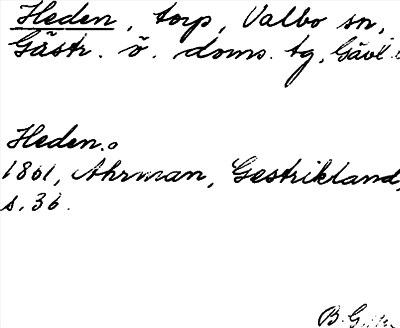 Heden, torp, Valbo sn,
Gästr. ö. doms. tg, Gävl.
Heden.
1861, Ahrman, Gestrikland,
s. 36.
B. G.